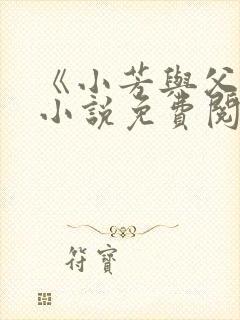 《小芳與父
小說免費閱
符寶